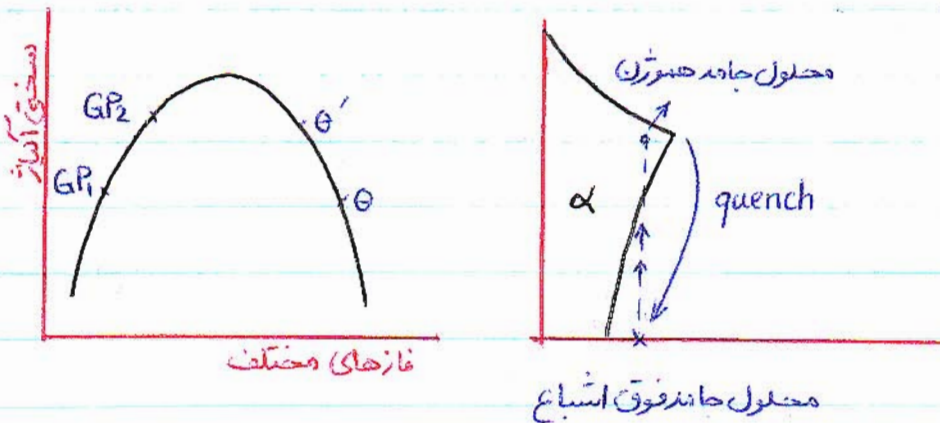 سختی آلیاژ
GP₁
GP₂
θ′
θ
فازهای مختلف
محلول جامد هموژن
α
quench
محلول جامد فوق اشباع